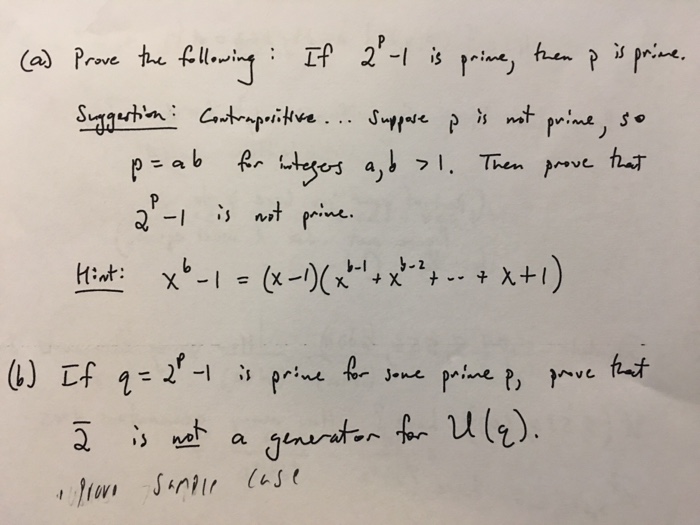 (a) Prove the following: If 2^p-1 is prime, then p is prime.
Suggestion: Contrapositive... Suppose p is not prime, so
p = ab for integers a, b > 1. Then prove that
2^p-1 is not prime.
Hint: x^b-1 = (x-1)(x^{b-1} + x^{b-2} + ... + x+1)
(b) If q = 2^p-1 is prime for some prime p, prove that
2̄ is not a generator for U(q).
Prove Sample Case